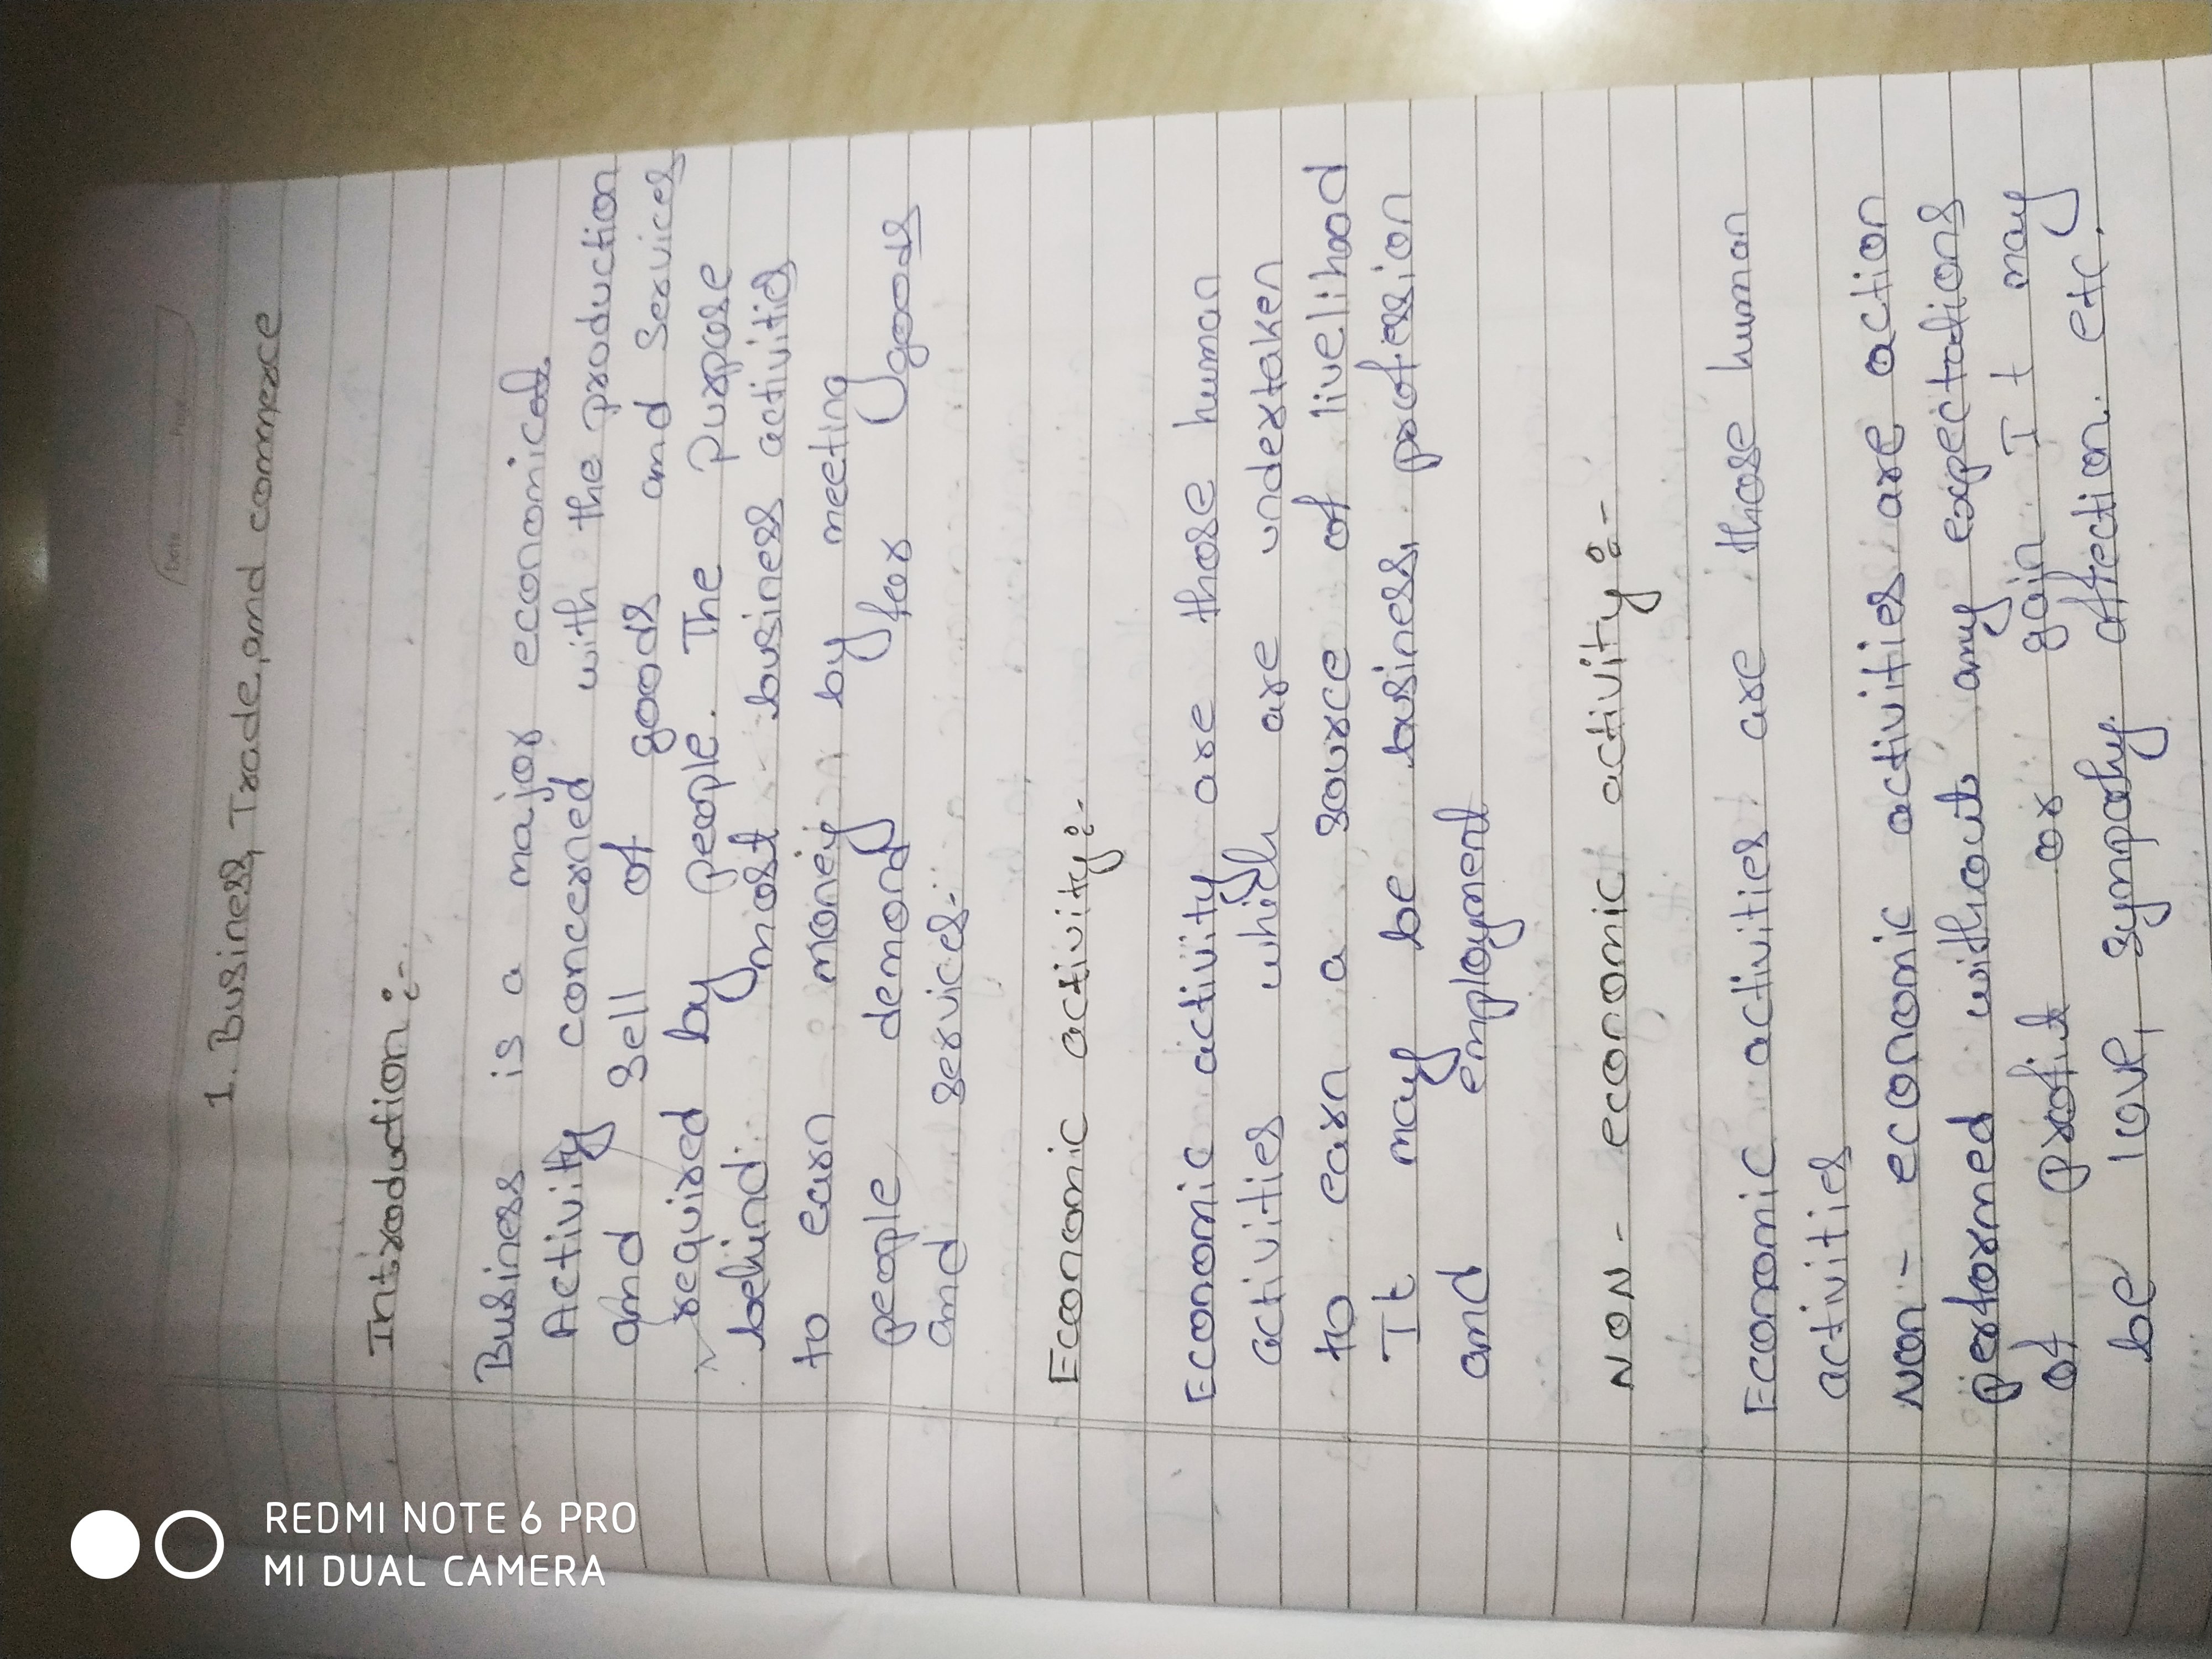 Date Page
1. Business, Trade, and commerce
Introduction :-
Business is a major economical
Activity concerned with the production
and sell of goods and services
required by people. The purpose
behind most business activities
to earn money by meeting
people demand for goods
and services.
Economic activity :-
Economic activity are those human
activities which are undertaken
to earn a source of livelihood
It may be business, profession
and employment
NON - economic activity :-
Economic activities are those human
activities
Non - economic activities are action
performed without any expectations
of profit or gain It may
be love, sympathy. affection. etc.
REDMI NOTE 6 PRO
MI DUAL CAMERA